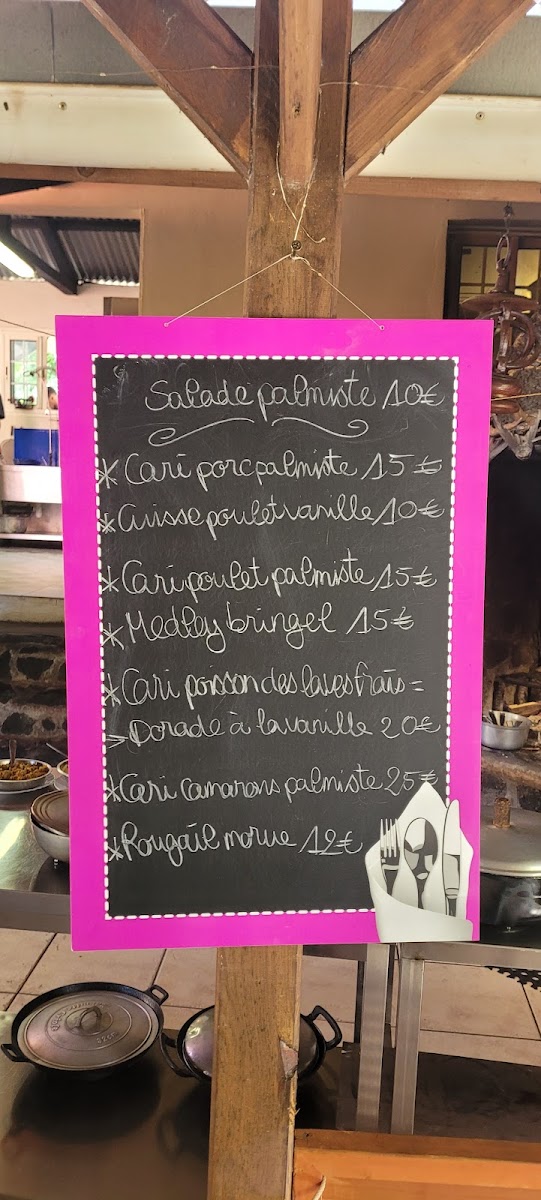 Salade palmiste 10€
* Cari porc palmiste 15€
* Cuisse poulet vanille 10€
* Cari poulet palmiste 15€
* Medley bringel 15€
* Cari poisson des laves frais =
> Dorade à la vanille 20€
* Cari camarons palmiste 25€
* Rougail morue 12€